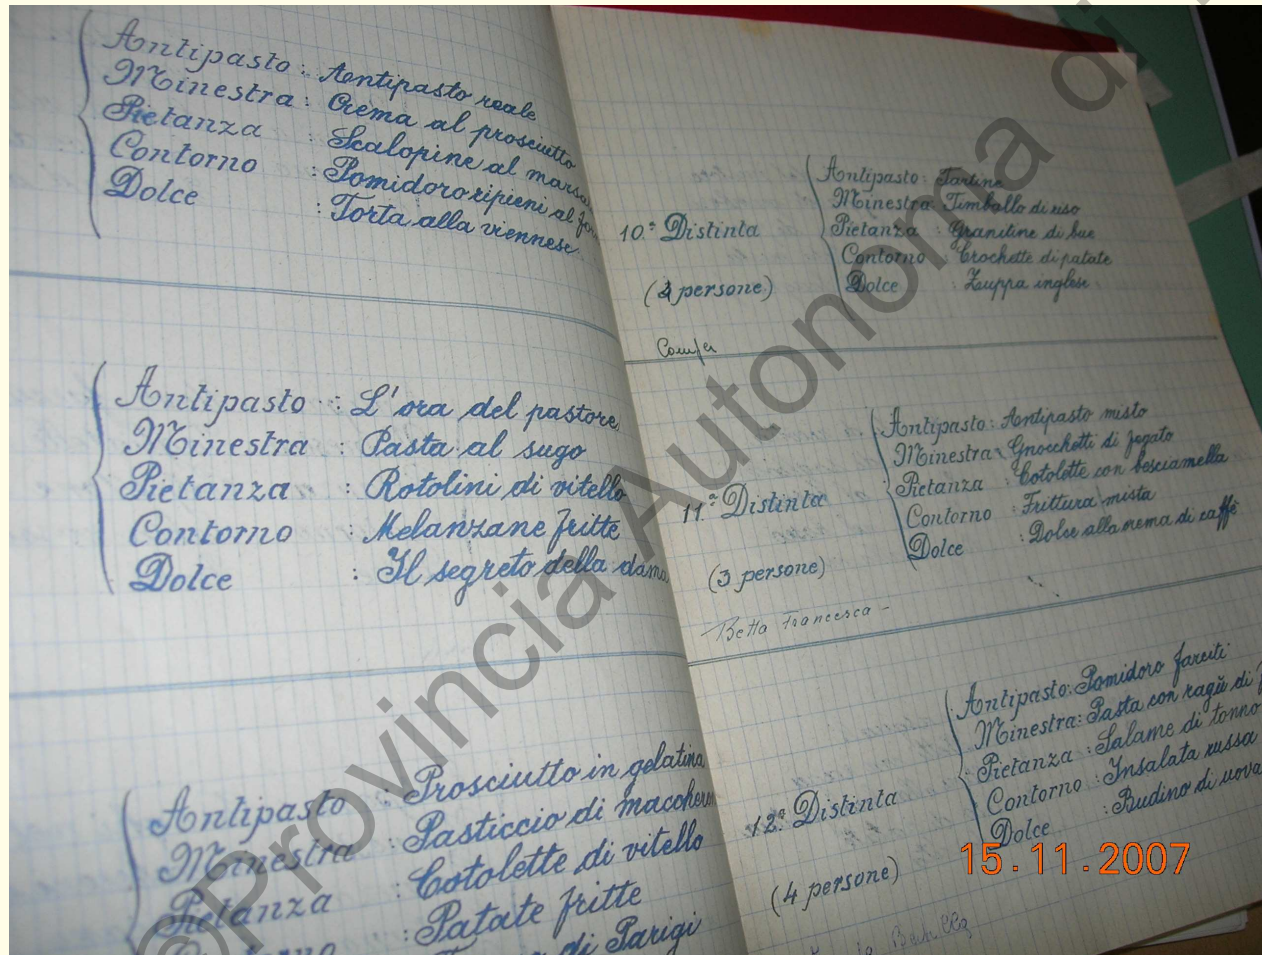 Antipasto : Antipasto reale
Minestra : Crema al prosciutto
Pietanza : Scalopine al marsala
Contorno : Pomidoro ripieni al
Dolce : Torta alla viennese
Antipasto : L'ora del pastore
Minestra : Pasta al sugo
Pietanza : Rotolini di vitello
Contorno : Melanzane fritte
Dolce : Il segreto della dama
Antipasto : Prosciutto in gelatina
Minestra : Pasticcio di maccheron
Pietanza : Cotolette di vitello
Contorno : Patate fritte
di Parigi
10.ª Distinta
(4 persone)
Antipasto : Tartine
Minestra : Timballo di riso
Pietanza : Granitine di bue
Contorno : Crochette di patate
Dolce : Zuppa inglese.
11.ª Distinta
(3 persone)
Betta Francesca -
Antipasto : Antipasto misto
Minestra : Gnocchetti di fegato
Pietanza : Cotolette con besciamella
Contorno : Frittura mista
Dolce : Dolce alla crema di caffè
12.ª Distinta
(4 persone)
Antipasto : Pomidoro farciti
Minestra : Pasta con ragù di
Pietanza : Salame di tonno
Contorno : Insalata russa
Dolce : Budino di uova
15.11.2007
©Provincia Autonoma di